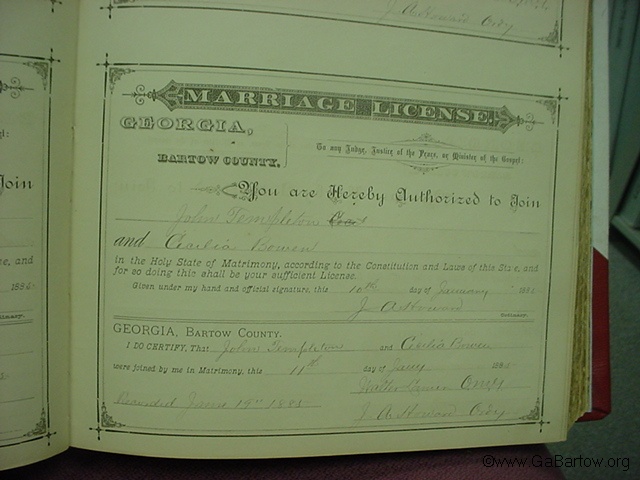 J. A. Howard Ordy
MARRIAGE LICENSE.
GEORGIA,
BARTOW COUNTY.
To any Judge, Justice of the Peace, or Minister of the Gospel:
You are Hereby Authorized to Join
John Templeton
and Cecilia Bowen
in the Holy State of Matrimony, according to the Constitution and Laws of this State, and
for so doing this shall be your sufficient License.
Given under my hand and official signature, this 10th day of January 188
J. A. Howard
Ordinary.
GEORGIA, Bartow County.
I DO CERTIFY, That John Templeton and Cecilia Bowen
were joined by me in Matrimony, this 11th day of Jany 188
Recorded Jany 19th 1885
J. A. Howard Ordy
Join
e, and
188
Ordinary.
©www.GaBartow.org